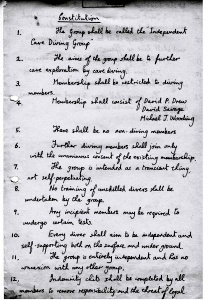 Constitution
1. The Group shall be called the Independent
Cave Diving Group
2. The aims of the group shall be to further
cave exploration by cave diving.
3. Membership shall be restricted to diving
members.
4. Membership shall consist of David P. Drew
David Savage
Michael J. Wooding
5. There shall be no non-diving members
6. Further diving members shall join only
with the unanimous consent of the existing membership.
7. The group is intended as a transient thing
not self-perpetuating.
8. No training of unskilled divers shall be
undertaken by the group.
9. Any incipient members may be required to
undergo certain tests.
10. Every diver shall aim to be independent and
self-supporting both on the surface and underground.
11. The group is entirely independent and has no
connexion with any other group.
12. Indemnity chits shall be completed by all
members to remove responsibility and the threat of legal